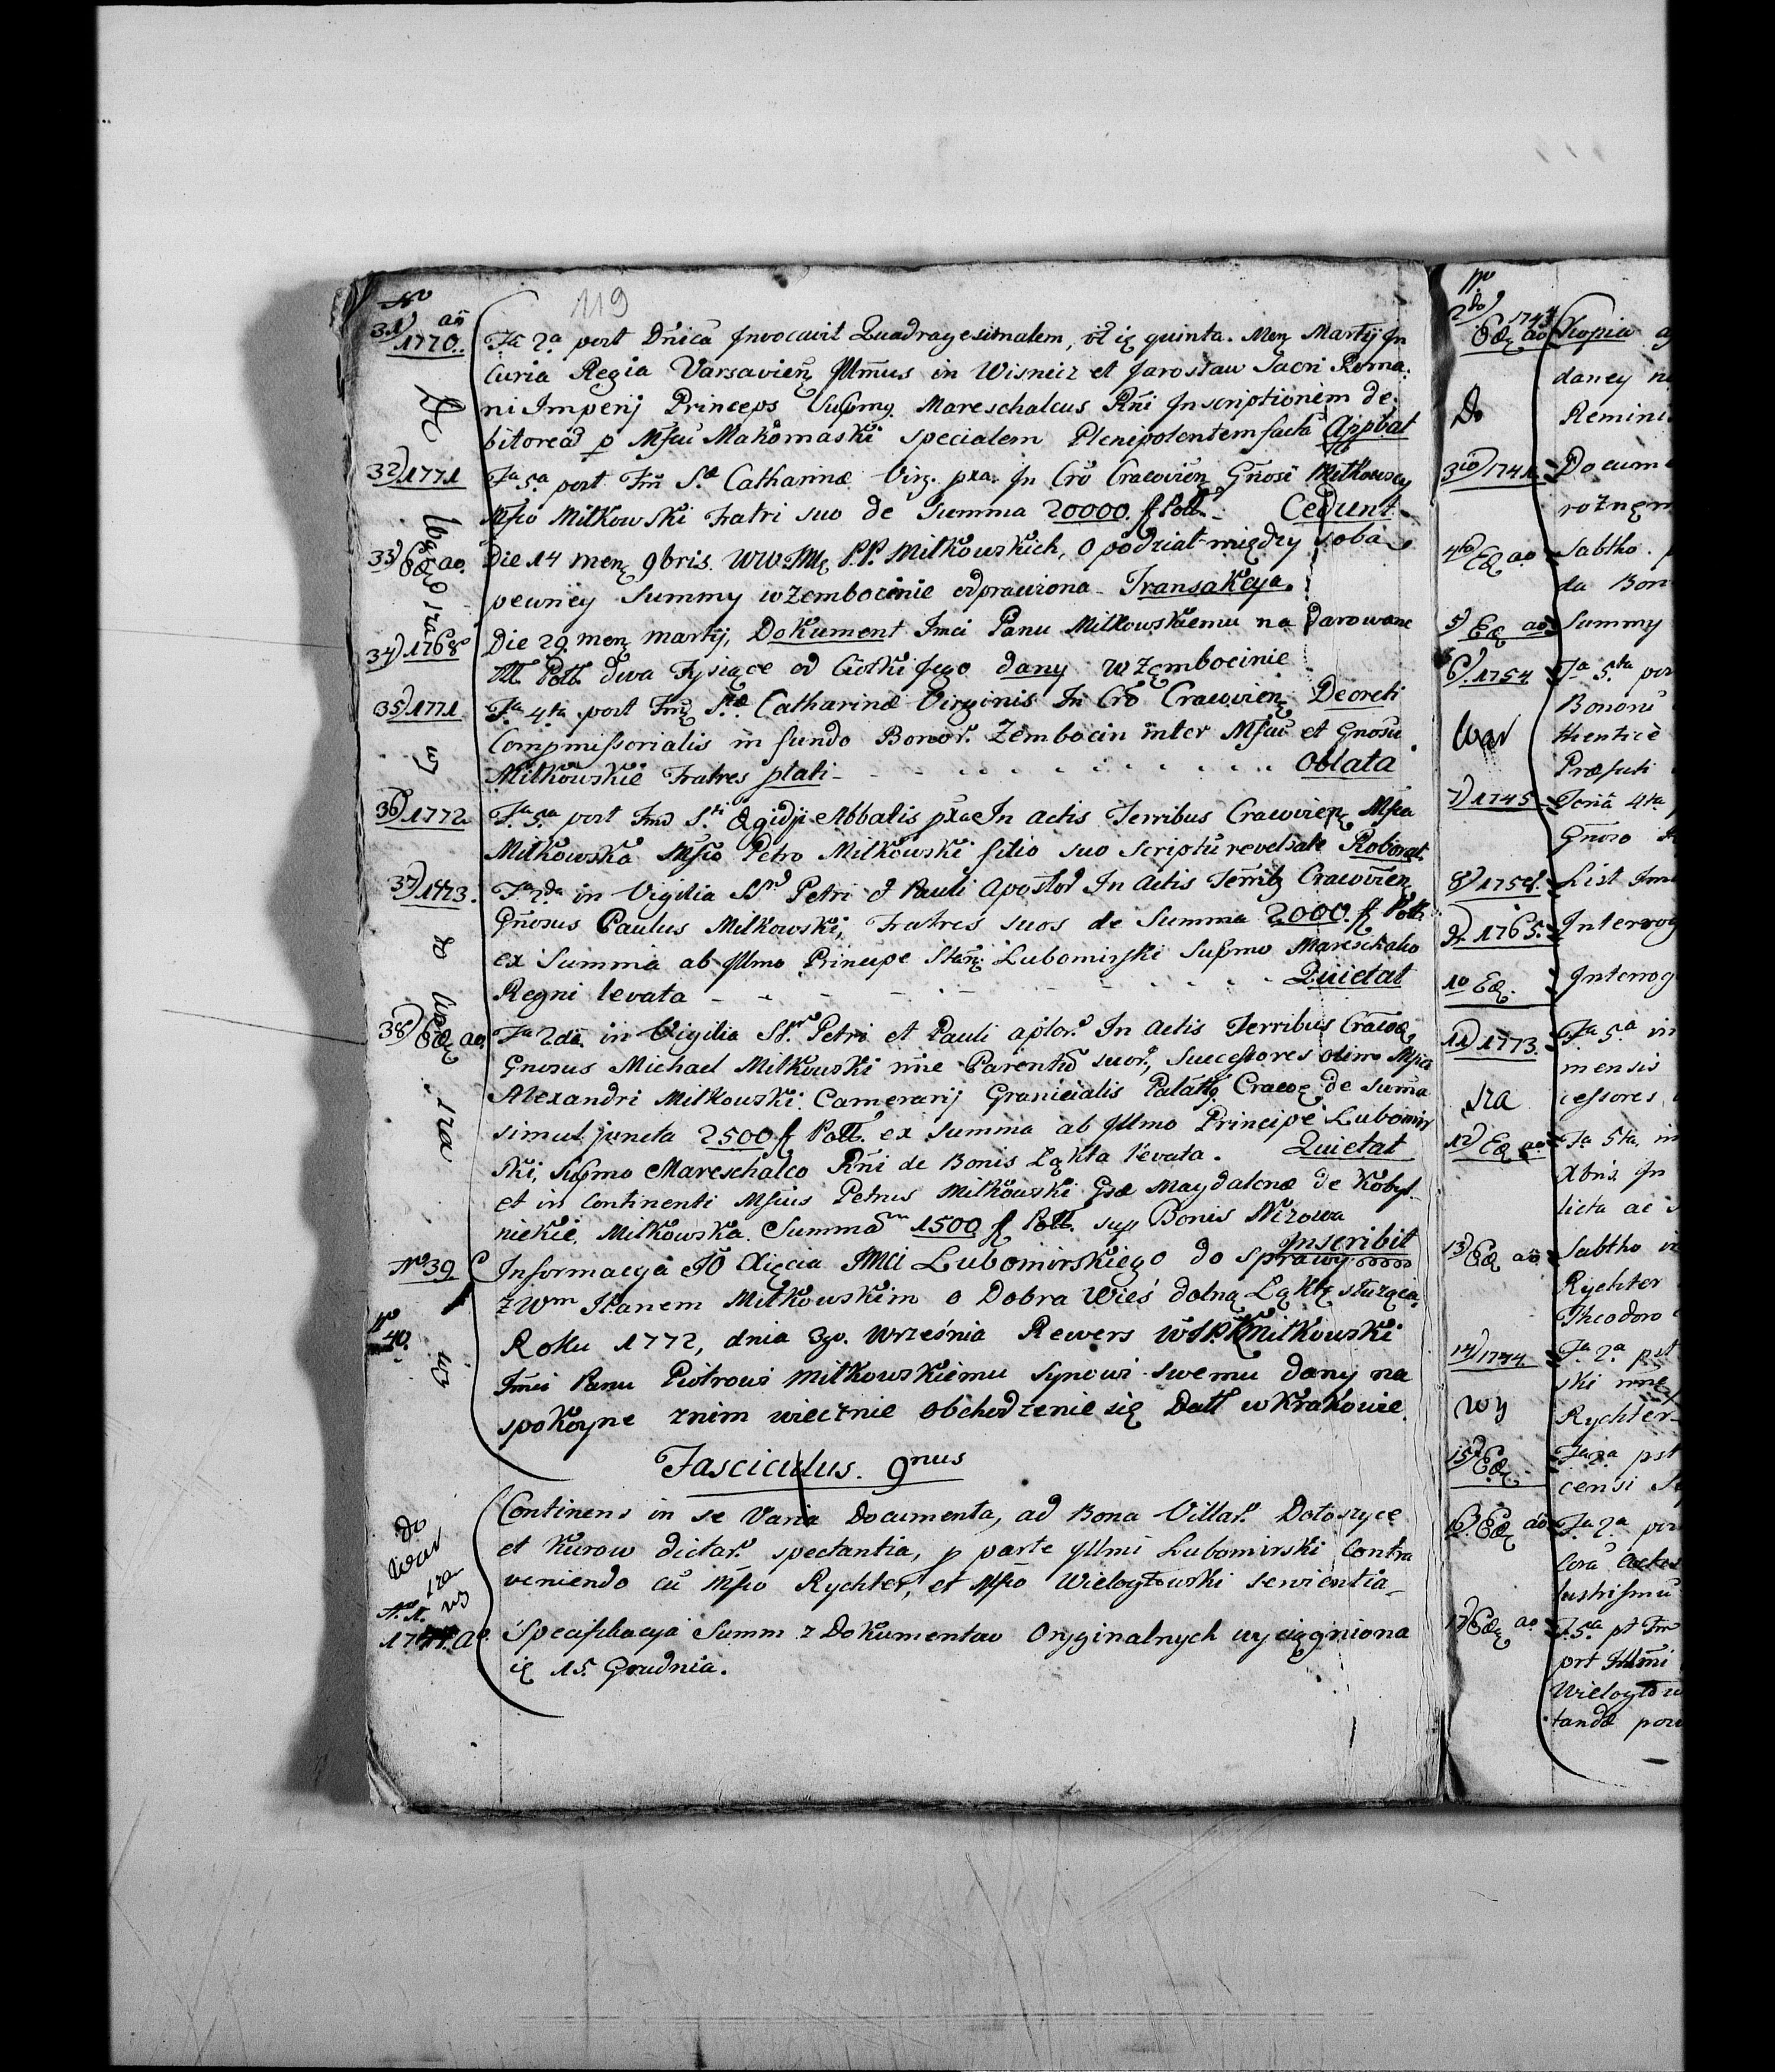 119
No
31) ao 1770. Fa 2a post Dnicā Invocavit Quadragesimalem, ut ię quinta. Menę Martij In
Curia Regia Varsavienę Illmus in Wisnicz et Jarosław Sacri Roma-
ni Imperij Princeps Supmę Mareschalcus Rni Inscriptionem de-
bitoreā p Mfcū Makomaski specialem Plenipotentem factā Appbat
32) 1771 Fa 5a post Fm Stæ Catharinæ Virg. pxa. In Cro Cracovienę Gnosi Miłkowscy
Mfco Miłkowski Fratri suo de Summa 20000. f Poll. Cedunt
33) Eodę ao. Die 14 menę 9bris. WW. IMę P.P. Miłkowskich, o podział między sobą
pewney Summy w Zembocinie odprawiona Transakcya
34) 1768 Die 29 menę martij, Dokument Imci Panu Miłkowskiemu na darowane
Poll. dwa Tysiące od Ciotki Jego dany w Zembocinie
35) 1771 Fa 4ta post Fmę Stæ Catharinæ Virginis In Cro Cracovienę Decreti
Compmissorialis in fundo Bonor. Zembocin inter Mfcū et Gnosū
Miłkowskie Fratres ptati - - - - - - Oblata
36) 1772 Fa 5a post Fmę Sti Ægidji Abbatis pxa In actis Terribus Cracovienę Mfca
Miłkowska Mfco Petro Miłkowski filio suo Scriptū reversale Roborat.
37) 1773. Fa 2da in Vigilia SS Petri et Pauli Apostor In Actis Terribę Cracovienę
Gnosus Paulus Miłkowski, Fratres suos de Summa 2000. f Poll.
ex Summa ab Illmo Principe Stanę Lubomirski Supmo Mareschalco
Regni levata - - - - - - Quietat
38) Eodę ao. Fa 2da in Vigilia SS. Petri et Pauli aptor. In Actis Terribus Cracovę
Gnosus Michael Miłkowski nne Parentū suor, Successores olim Mfci
Alexandri Miłkowski Camerarij Granicialis Palattę Cracovę de suma
simul juncta 2500 f Poll. ex Summa ab Illmo Principe Lubomir
ski, Supmo Mareschalco Rni de Bonis Łąkta levata. Quietat
et in Continenti Mfcus Petrus Miłkowski Gsæ Magdalenæ de Kobyl-
nickie Miłkowska Summam 1500 f Poll. sup Bonis Nizowa
Inscribit
No 39 Informacya JO Xięcia IMci Lubomirskiego do sprawy
z Wm Janem Miłkowskim o Dobra Wieś dolną Łąktę służąca
No 40. Roku 1772, dnia 3go. Września Rewers Miłkowski
Imci Panu Piotrowi Miłkowskiemu Synowi swemu dany na
spokoyne znim wiecznie obchodzenie się Datt w Krakowie.
Fasciculus. 9nus
Continens in se Varia Documenta, ad Bona Villar. Dołoszyce
et Kurow dictar. spectantia, p parte Illmi Lubomirski Contra
veniendo cū Mfco Rychter, et Mfco Wielogłowski servientia
No 1. Specifikacya Summ z Dokumentow Oryginalnych wyciągniona
ię 15. Grudnia.
Do
war
sza
wy
No
2do Eodę ao 1741 Kopia
daney
Do Remini
3tio 1741. Docum
rożnem
4to Eodę ao. Sabtho.
da Bon
5) Eodę ao Summy
6) 1754 Fa 5ta pos
Bonorū
War thentice
Præfati
7) 1745 Feria 4ta
Gnoso
8) 175 List Im
9) 1765. Interrog
10 Eodę. Interrog
11) 1773. Fa 5a in
mensis
sza cessores
12) Eodę ao Fa 5ta, in
Xbris. In
licta ac
13) Eodę ao Sabtho
Rychter
Theodoro
14) 1744 Fa 2a pst
ski nne
wy Rychter
15) Eodę. Fa 2a pst
censi
16) Eodę ao Fa 2a pos
Corā
lustrissimū
17) Eodę ao F. 5ta pt Fm
prt Illmi
Wielogłow
tandæ